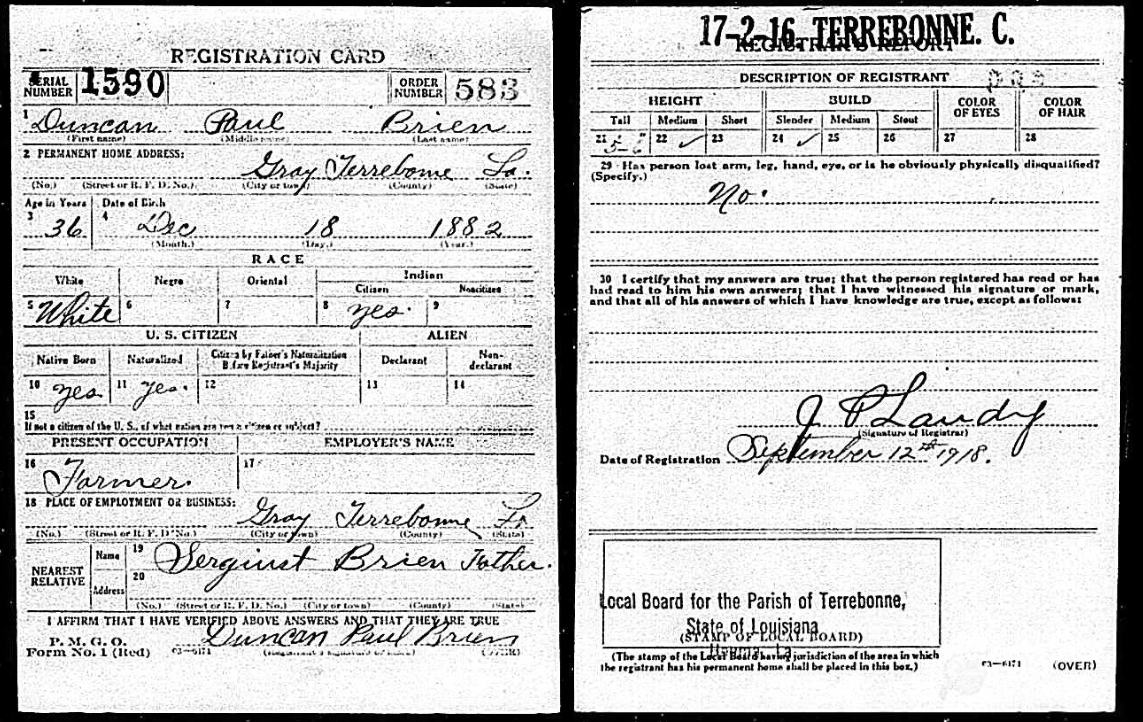 REGISTRATION CARD
SERIAL NUMBER 1590 ORDER NUMBER 583
1 Duncan Paul Brien
(First name) (Middle name) (Last name)
2 PERMANENT HOME ADDRESS:
Gray Terrebonne La.
(No.) (Street or R. F. D. No.) (City or town) (County) (State)
Age in Years Date of Birth
3 36 4 Dec 18 1882
(Month.) (Day.) (Year.)
RACE
White Negro Oriental Indian
Citizen Noncitizen
5 White 6 7 8 yes. 9
U. S. CITIZEN ALIEN
Native Born Naturalized Citizen by Father's Naturalization Before Registrant's Majority Declarant Non-declarant
10 yes 11 yes. 12 13 14
15
If not a citizen of the U. S., of what nation are you a citizen or subject?
PRESENT OCCUPATION EMPLOYER'S NAME
16 Farmer. 17
18 PLACE OF EMPLOYMENT OR BUSINESS:
Gray Terrebonne La
(No.) (Street or R. F. D. No.) (City or town) (County) (State)
NEAREST RELATIVE Name 19 Serginst Brien Father.
Address 20
(No.) (Street or R. F. D. No.) (City or town) (County) (State)
I AFFIRM THAT I HAVE VERIFIED ABOVE ANSWERS AND THAT THEY ARE TRUE
P. M. G. O.
Form No. 1 (Red) 03—6171 Duncan Paul Brien
17-2-16. TERREBONNE. C.
REGISTRAR'S REPORT
DESCRIPTION OF REGISTRANT
HEIGHT BUILD COLOR OF EYES COLOR OF HAIR
Tall Medium Short Slender Medium Stout
21 22 ✓ 23 24 ✓ 25 26 27 28
29 Has person lost arm, leg, hand, eye, or is he obviously physically disqualified?
(Specify.)
No.
30 I certify that my answers are true; that the person registered has read or has
had read to him his own answers; that I have witnessed his signature or mark,
and that all of his answers of which I have knowledge are true, except as follows:
J P Landry
(Signature of Registrar)
Date of Registration September 12th 1918.
Local Board for the Parish of Terrebonne,
State of Louisiana
(STAMP OF LOCAL BOARD)
Houma, La.
(The stamp of the Local Board having jurisdiction of the area in which
the registrant has his permanent home shall be placed in this box.)
03—6171 (OVER)